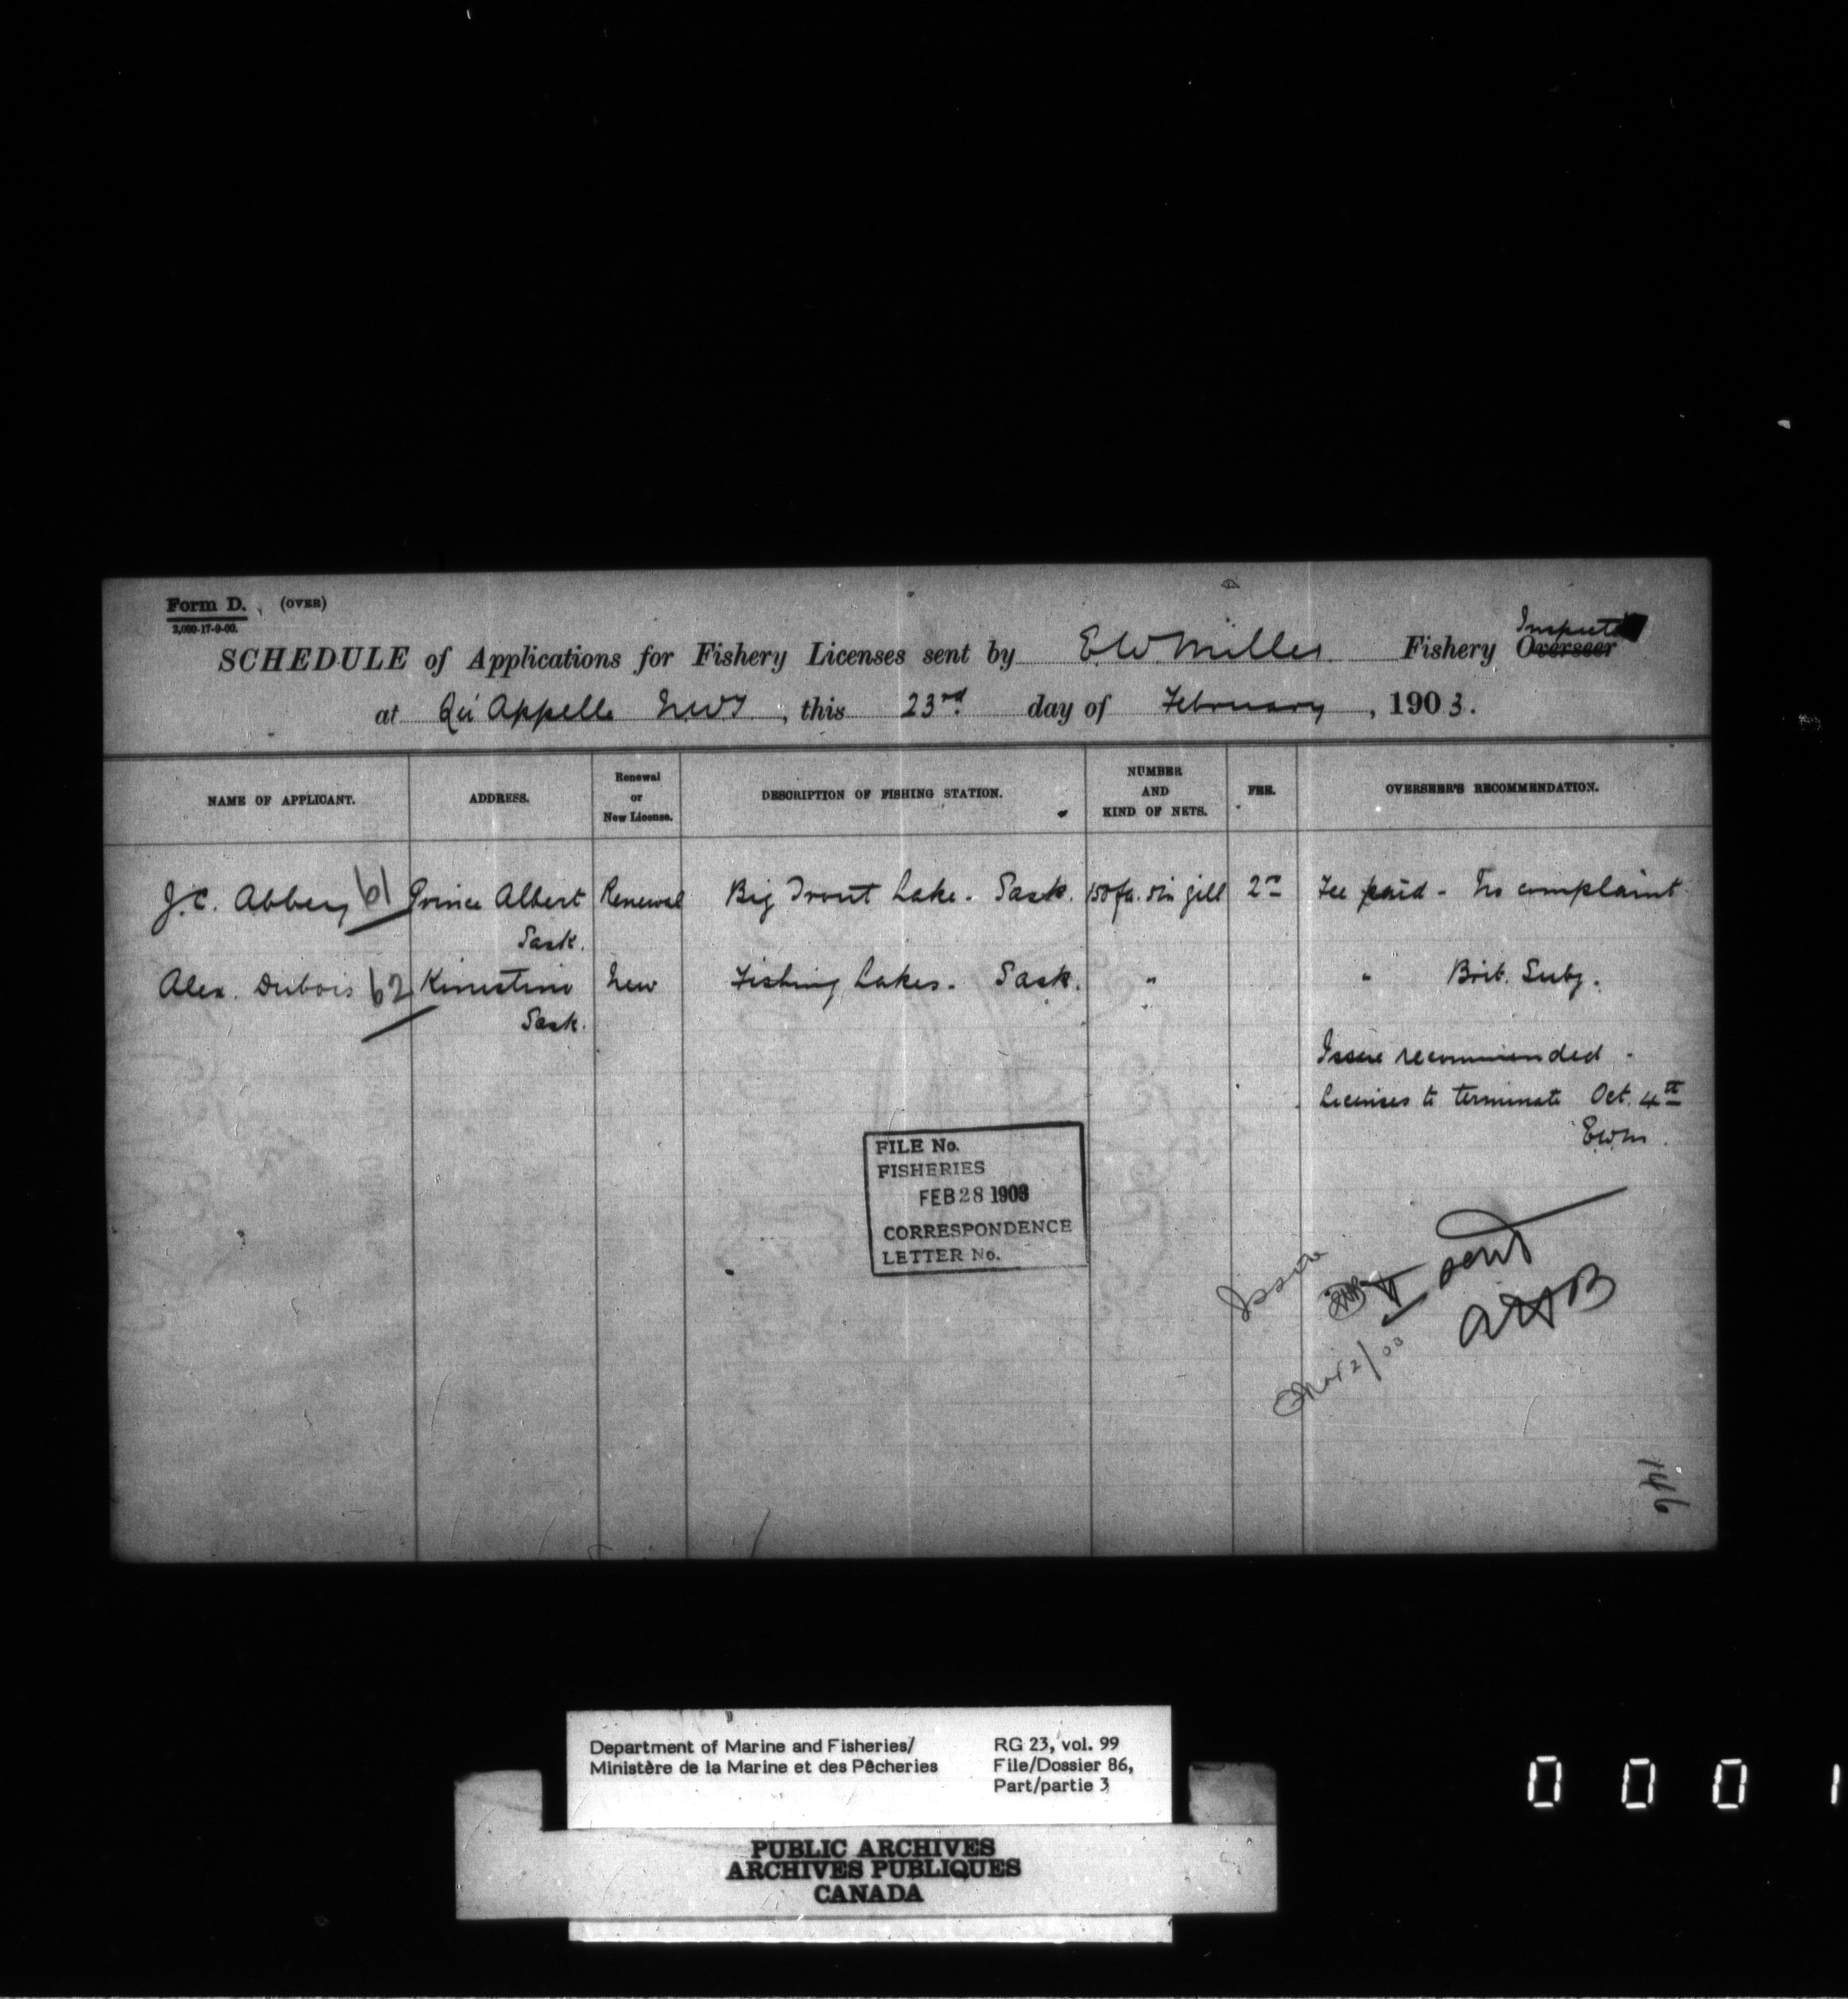 Form D. (OVER)
2,000-17-9-00.
SCHEDULE of Applications for Fishery Licenses sent by E W Miller Fishery Overseer Inspector
at Qu'Appelle NWT, this 23rd day of February, 1903.
NAME OF APPLICANT. ADDRESS. Renewal or New License. DESCRIPTION OF FISHING STATION. NUMBER AND KIND OF NETS. FEE. OVERSEER'S RECOMMENDATION.
J.C. Abbey 61 Prince Albert Renewal Big Trout Lake. Sask. 150 fa. 5 in gill 2 Fee paid - No complaint
Sask.
Alex. Dubois 62 Kinistino New Fishing Lakes. Sask. " " Brit. Subj.
Sask.
Issue recommended.
Licenses to terminate Oct. 4th
EWM.
FILE No.
FISHERIES
FEB 28 1903
CORRESPONDENCE
LETTER No.
Issue
sent
Mar 2/00
146
Department of Marine and Fisheries/
Ministère de la Marine et des Pêcheries
RG 23, vol. 99
File/Dossier 86,
Part/partie 3
PUBLIC ARCHIVES
ARCHIVES PUBLIQUES
CANADA
0 0 0 1